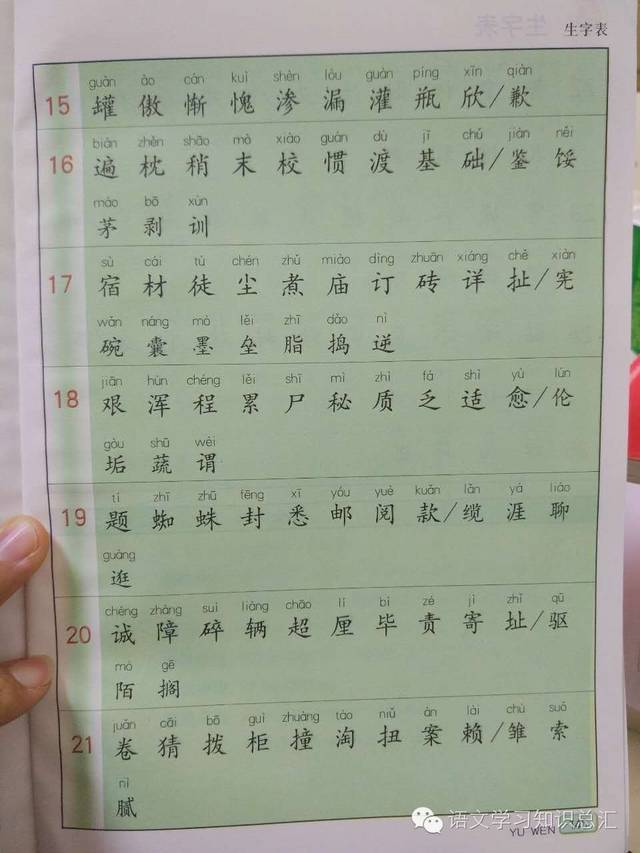 生字表
guàn ào cán kuì shèn lòu guàn píng xīn qiàn
15 罐 傲 惭 愧 渗 漏 灌 瓶 欣/歉
biàn zhěn shāo mò xiào guàn dù jī chǔ jiàn něi
16 遍 枕 稍 末 校 惯 渡 基 础/鉴 馁
máo bō xùn
茅 剥 训
sù cái tú chén zhǔ miào dìng zhuān xiáng chě xiàn
17 宿 材 徒 尘 煮 庙 订 砖 详 扯/宪
wǎn náng mò lěi zhī dǎo nì
碗 囊 墨 垒 脂 捣 逆
jiān hún chéng lěi shī mì zhì fá shì yù lún
18 艰 浑 程 累 尸 秘 质 乏 适 愈/伦
gòu shū wèi
垢 蔬 谓
tí zhī zhū fēng xī yóu yuè kuǎn lǎn yá liáo
19 题 蜘 蛛 封 悉 邮 阅 款/缆 涯 聊
guàng
逛
chéng zhàng suì liàng chāo lí bì zé jì zhǐ qū
20 诚 障 碎 辆 超 厘 毕 责 寄 址/驱
mò gē
陌 搁
juàn cāi bō guì zhuàng táo niǔ àn lài chú suǒ
21 卷 猜 拨 柜 撞 淘 扭 案 赖/雏 索
nì
腻
语文学习知识总汇
YU WEN